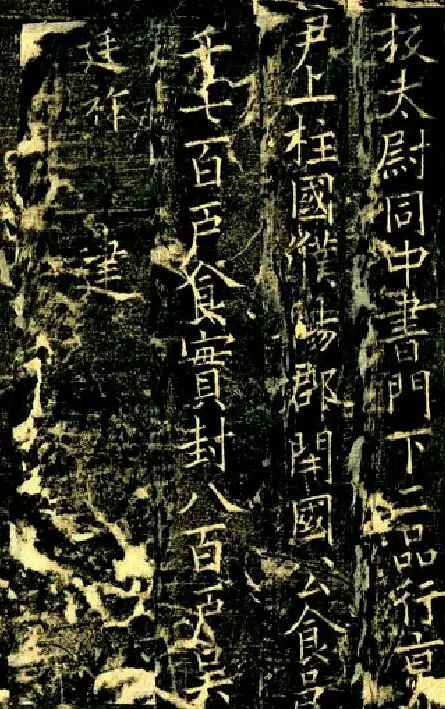 挍太尉同中書門下二品行京
尹上柱國濮陽郡開國公食邑
千七百戶食實封八百戶吳
廷祚 建